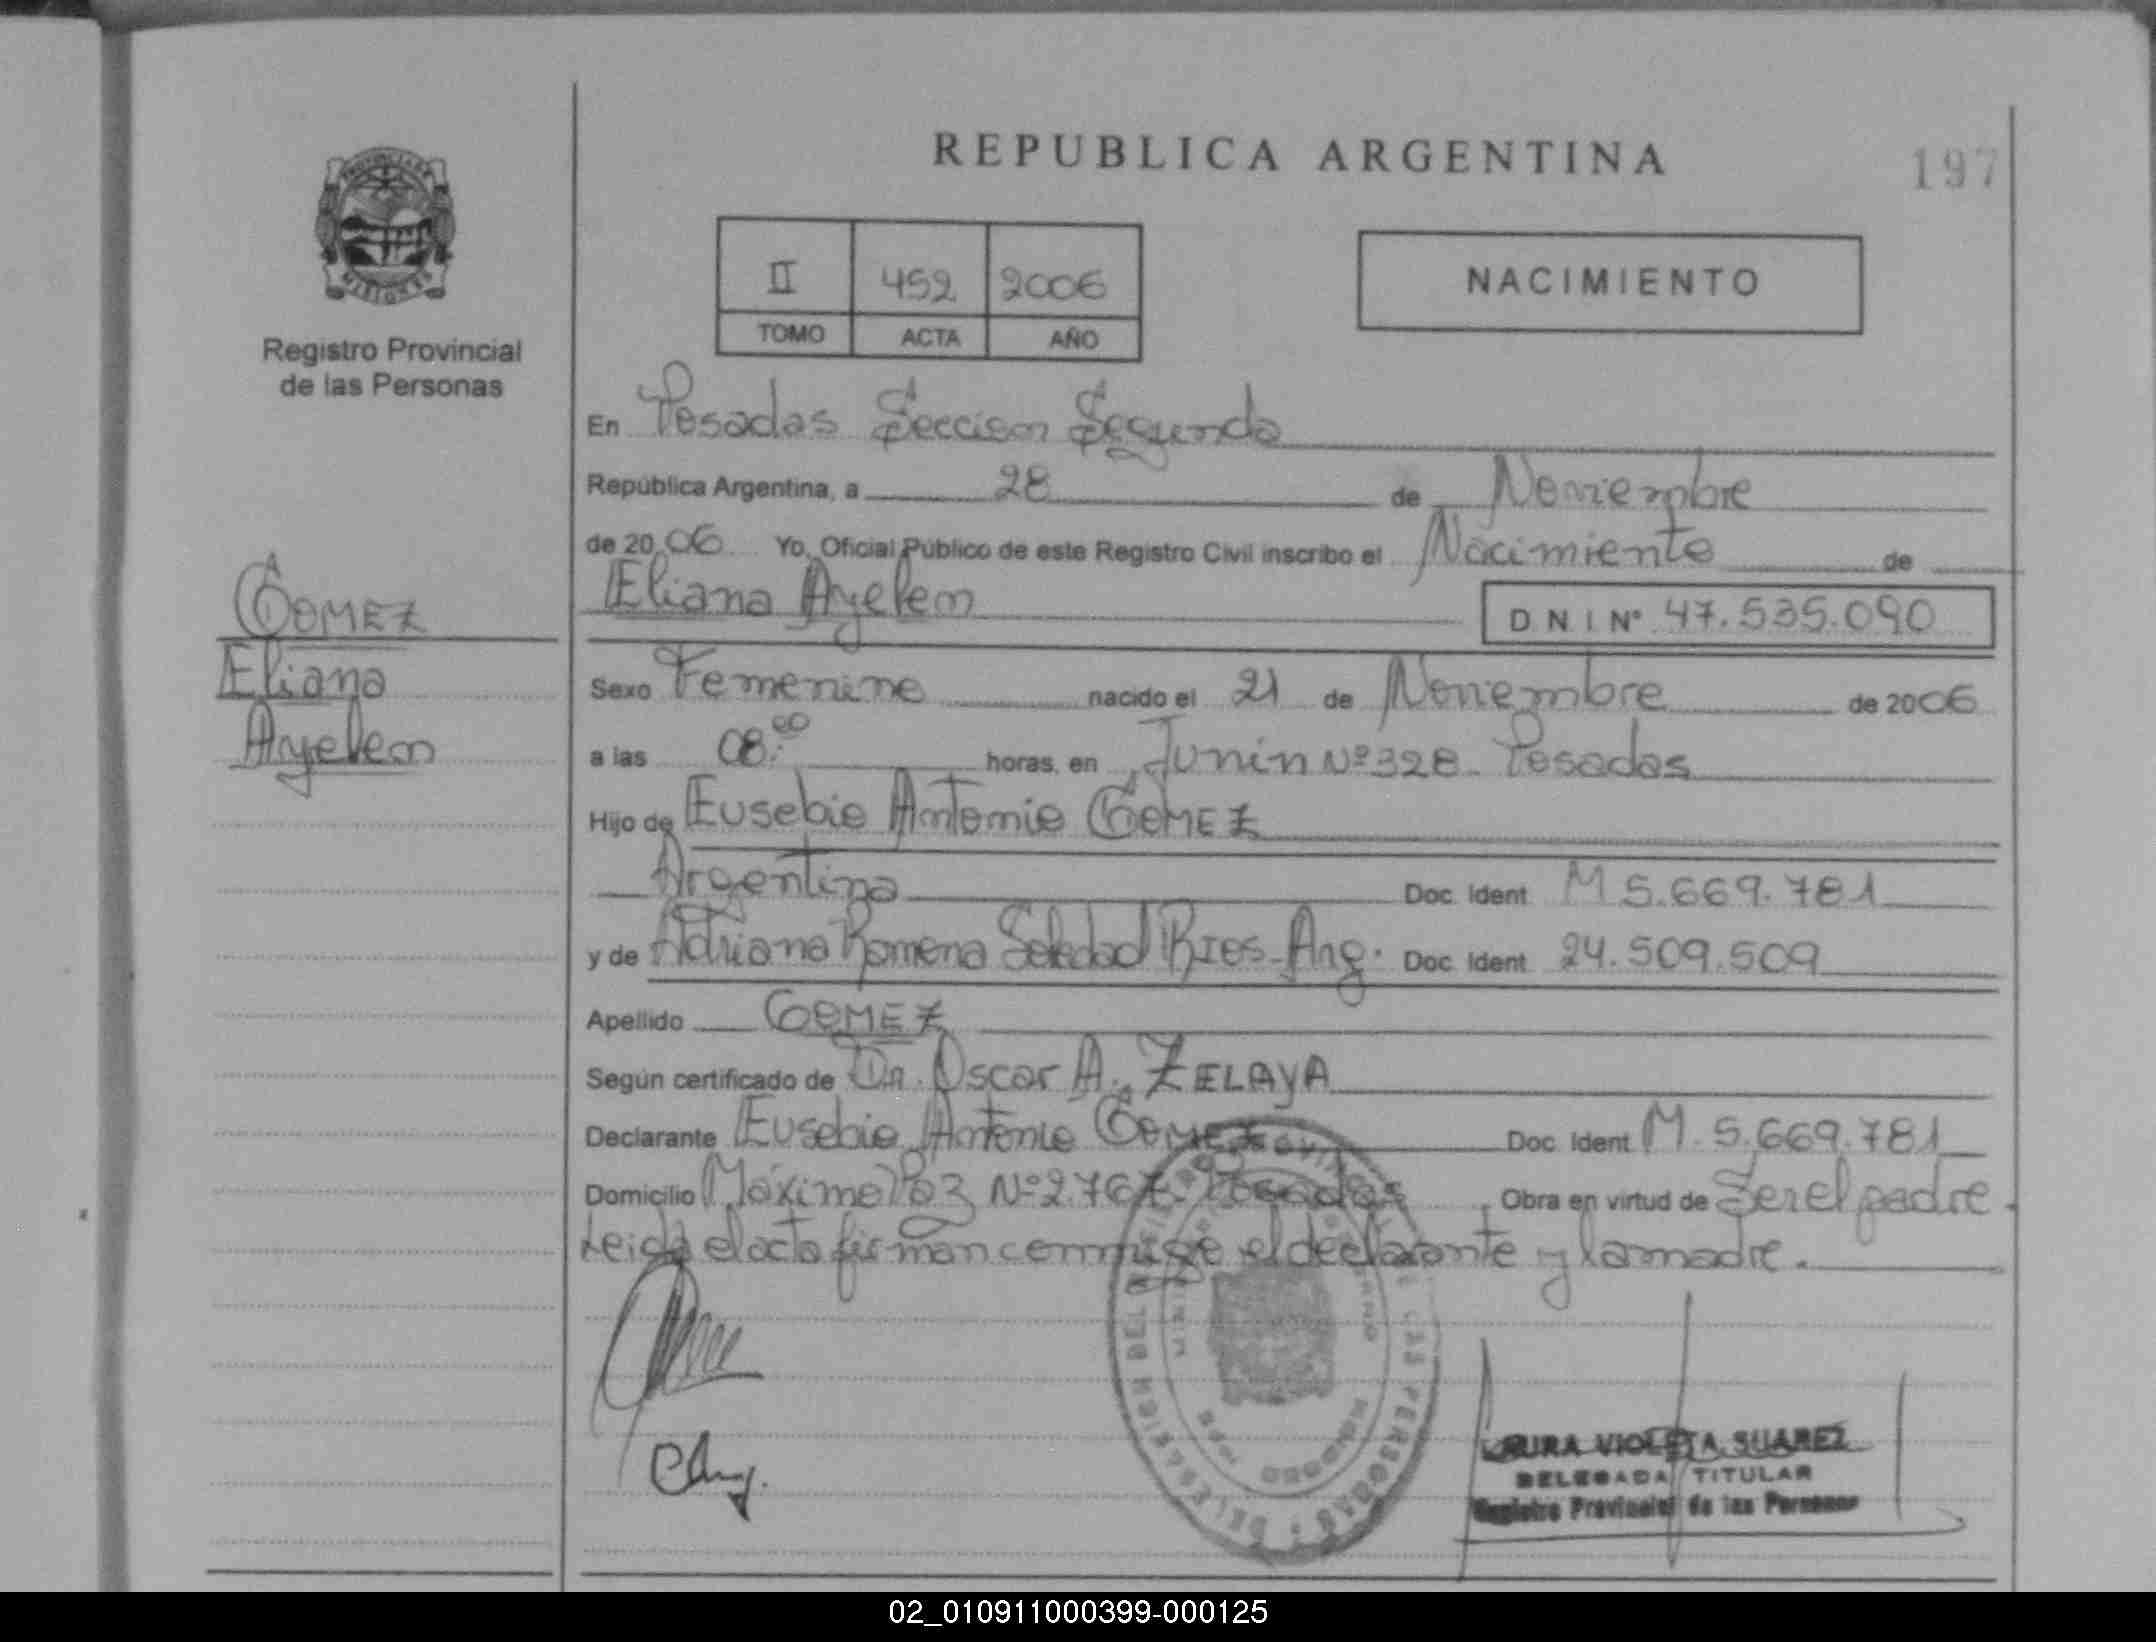 REPUBLICA ARGENTINA
197
PROVINCIA DE
MISIONES
Registro Provincial
de las Personas
II 452 2006
TOMO ACTA AÑO
NACIMIENTO
En Posadas Seccion Segunda
República Argentina, a 28 de Noviembre
de 2006 Yo, Oficial Público de este Registro Civil inscribo el Nacimiento de
Eliana Ayelen
D N I Nº 47.535.090
GOMEZ
Eliana
Ayelen
Sexo Femenino nacido el 21 de Noviembre de 2006
a las 08:00 horas, en Junin Nº 328 - Posadas
Hijo de Eusebio Antonio GOMEZ
Argentina Doc. Ident M 5.669.781
y de Adriana Romena Soledad Rios - Arg. Doc. Ident 24.509.509
Apellido GOMEZ
Según certificado de Dr. Oscar A. ZELAYA
Declarante Eusebio Antonio GOMEZ Doc. Ident M. 5.669.781
Domicilio Máximo Paz Nº 2.767 - Posadas Obra en virtud de Ser el padre.
Leida el acta firman conmigo el declarante y la madre.
LAURA VIOLETA SUAREZ
DELEGADA TITULAR
Registro Provincial de las Personas
02_010911000399-000125